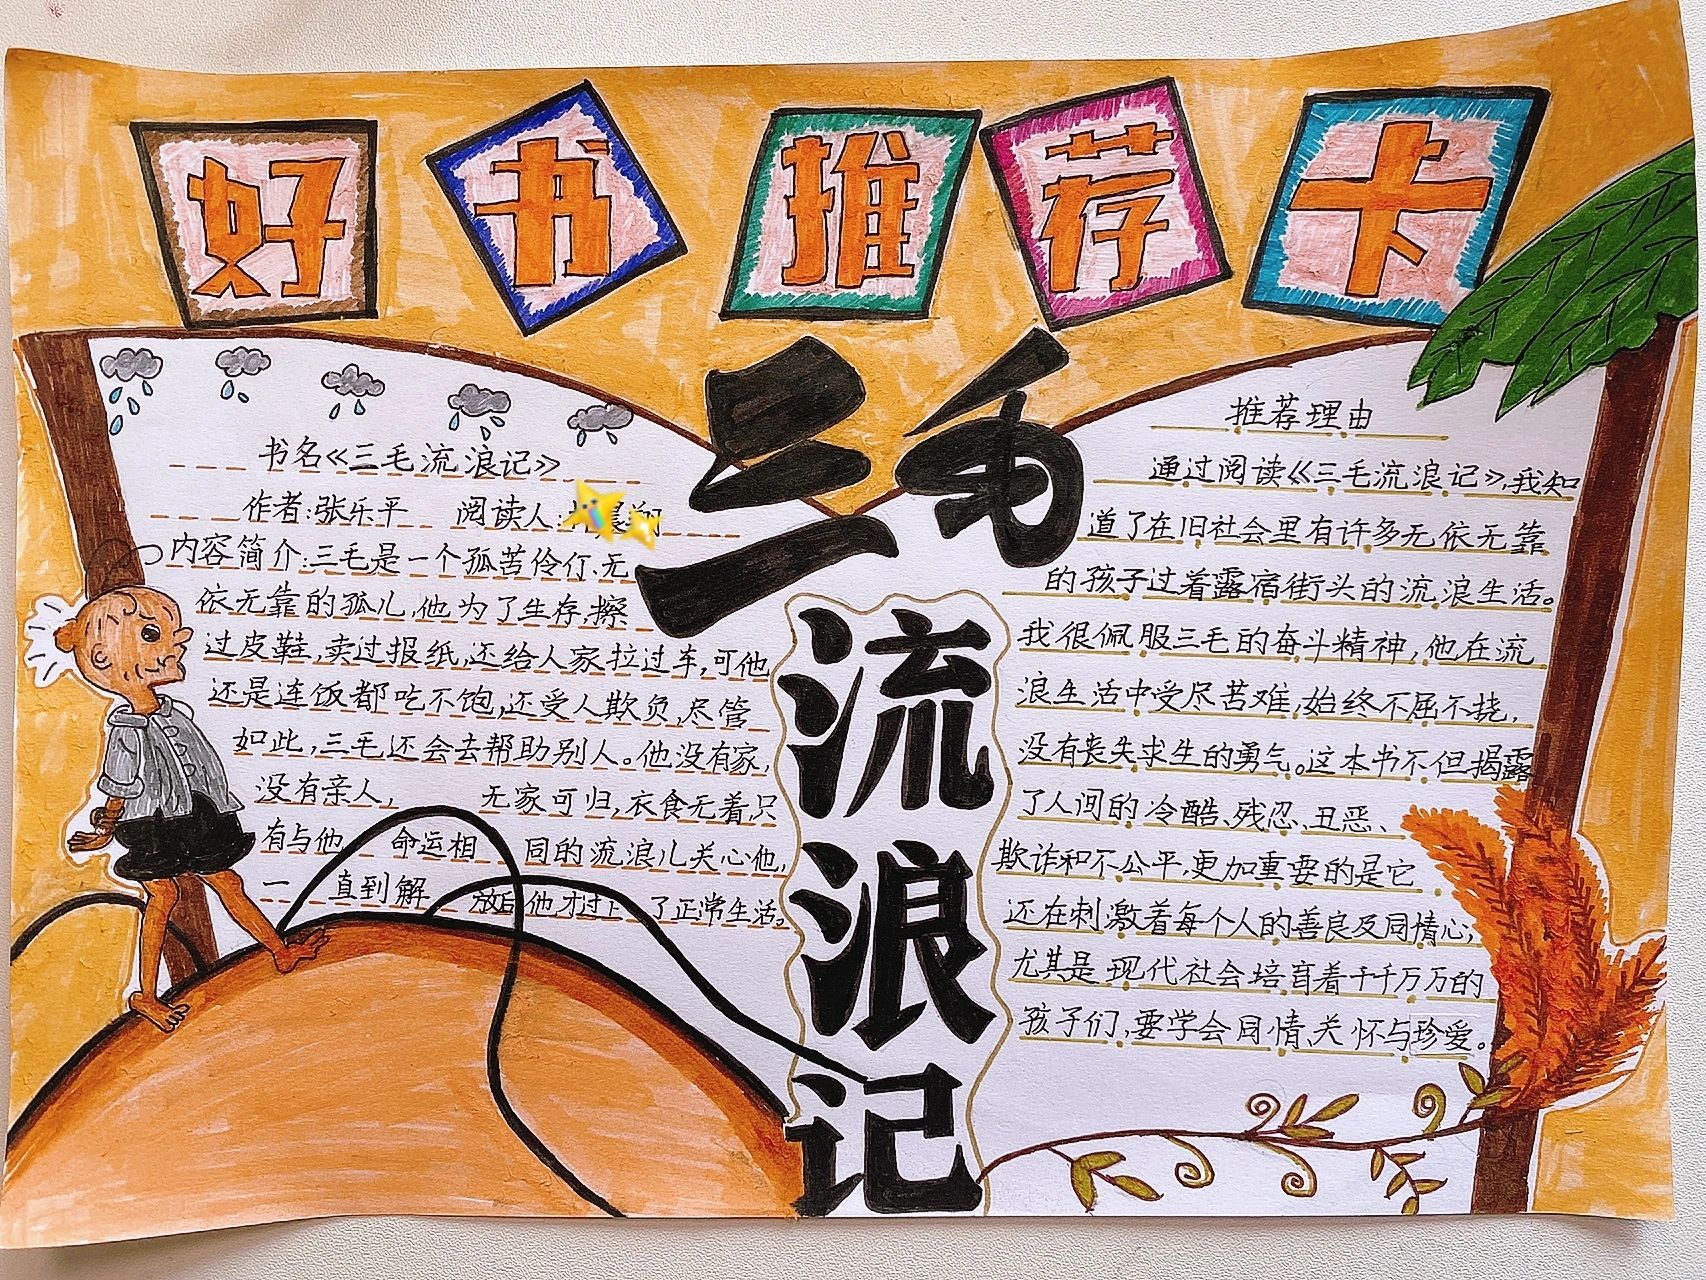 好书推荐卡
三毛
流浪记
书名《三毛流浪记》
作者:张乐平 阅读人:
内容简介:三毛是一个孤苦伶仃、无
依无靠的孤儿,他为了生存,擦
过皮鞋,卖过报纸,还给人家拉过车,可他
还是连饭都吃不饱,还受人欺负,尽管
如此,三毛还会去帮助别人。他没有家,
没有亲人, 无家可归,衣食无着只
有与他 命运相 同的流浪儿关心他,
一 直到解 放后他才过上 了正常生活。
推荐理由
通过阅读《三毛流浪记》,我知
道了在旧社会里有许多无依无靠
的孩子过着露宿街头的流浪生活。
我很佩服三毛的奋斗精神,他在流
浪生活中受尽苦难,始终不屈不挠,
没有丧失求生的勇气。这本书不但揭露
了人间的冷酷、残忍、丑恶、
欺诈和不公平,更加重要的是它
还在刺激着每个人的善良及同情心;
尤其是现代社会培育着千千万万的
孩子们,要学会同情、关怀与珍爱。